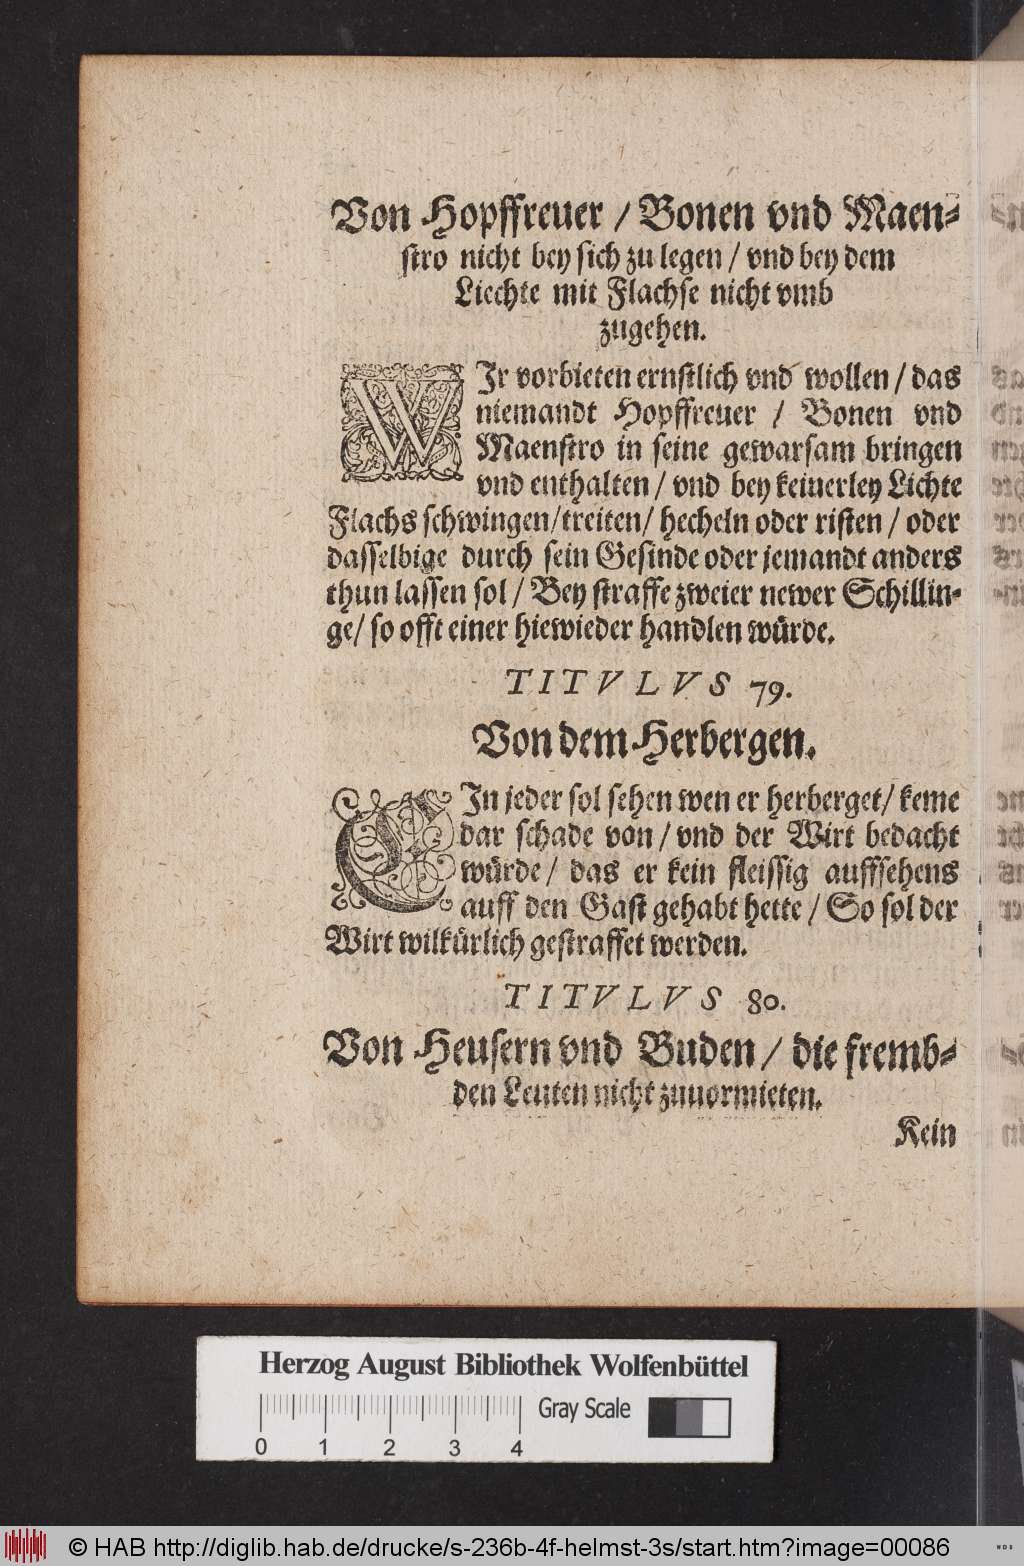 Von Hopffreuer / Bonen vnd Maen-
stro nicht bey sich zu legen / vnd bey dem
Liechte mit Flachse nicht vmb
zugehen.
WIr vorbieten ernstlich vnd wollen / das
niemandt Hopffreuer / Bonen vnd
Maenstro in seine gewarsam bringen
vnd enthalten / vnd bey keinerley Lichte
Flachs schwingen/treiten/ hecheln oder risten / oder
dasselbige durch sein Gesinde oder jemandt anders
thun lassen sol / Bey straffe zweier newer Schillin-
ge/ so offt einer hiewieder handlen würde.
TITVLVS 79.
Von dem Herbergen.
EIn jeder sol sehen wen er herberget/ keme
dar schade von / vnd der Wirt bedacht
würde / das er kein fleissig auffsehens
auff den Gast gehabt hette / So sol der
Wirt wilkürlich gestraffet werden.
TITVLVS 80.
Von Heusern vnd Buden / die fremb-
den Leuten nicht zuuormieten.
Kein
Herzog August Bibliothek Wolfenbüttel
0 1 2 3 4 Gray Scale
© HAB http://diglib.hab.de/drucke/s-236b-4f-helmst-3s/start.htm?image=00086